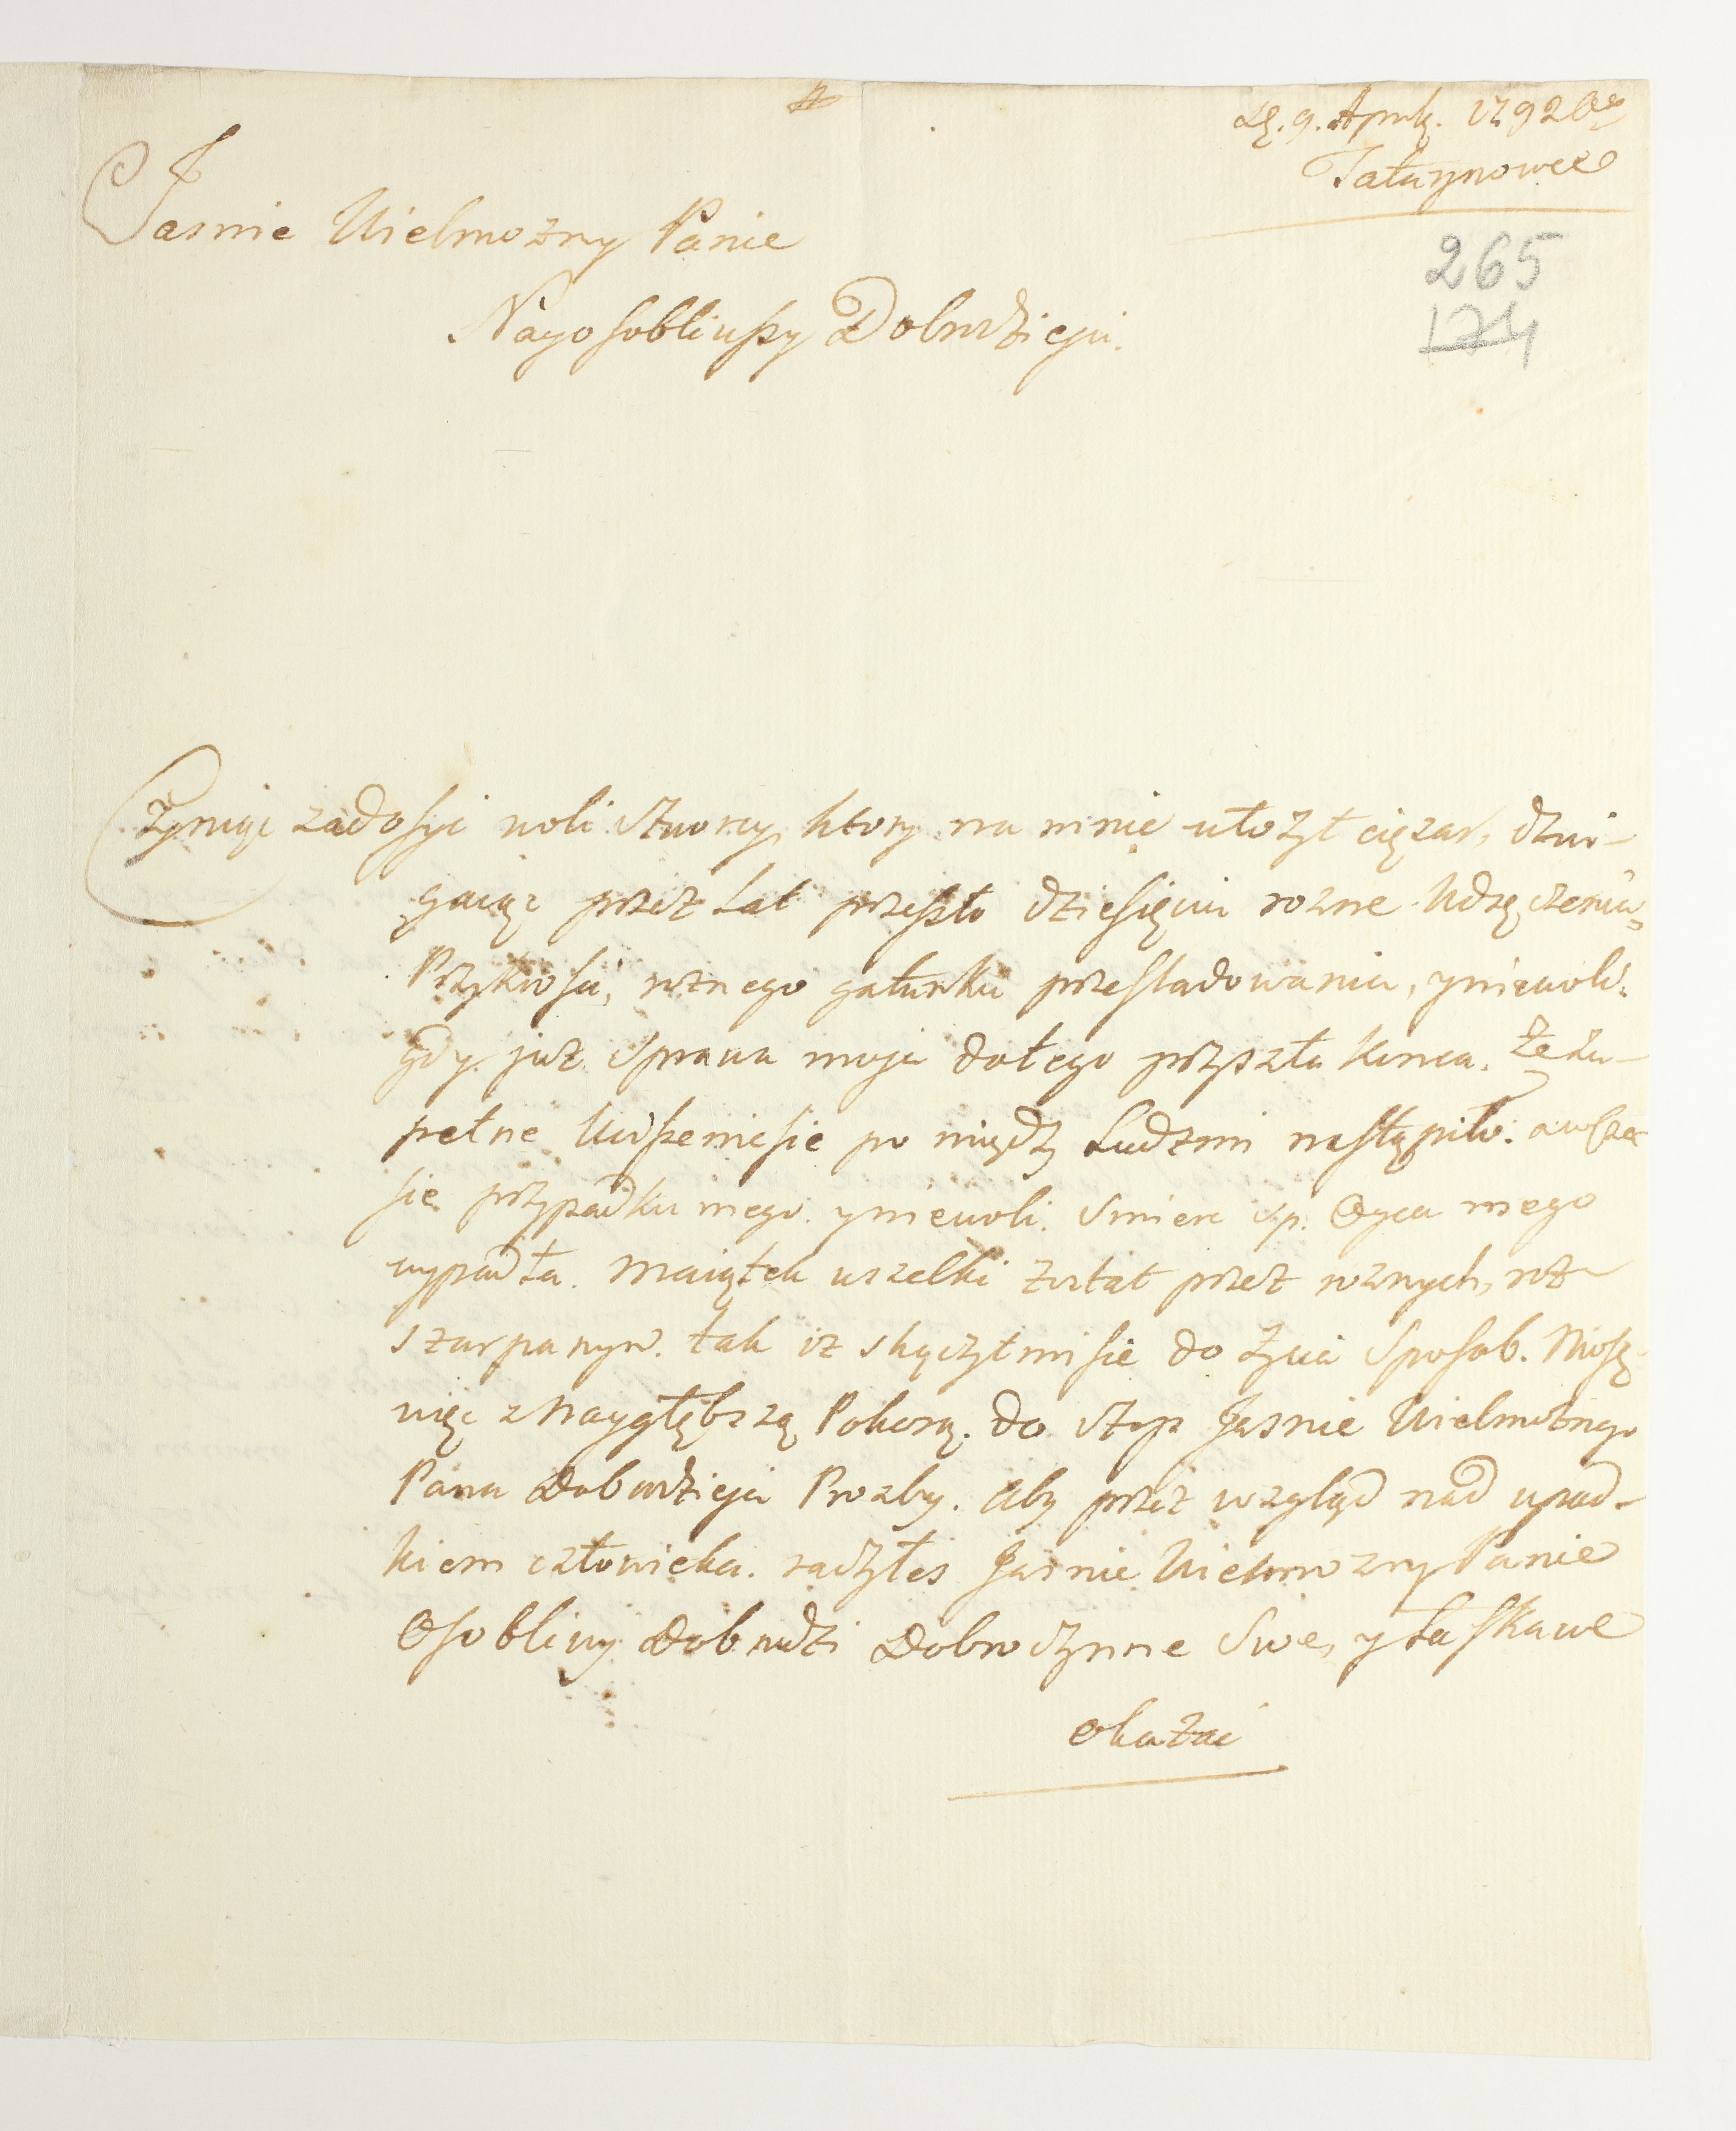 D. 9. Aprilis. 1792 Go
Tatarynowce
265
174
Jasnie Wielmozny Panie
Nayosobliwszy Dobrodzieju.
Czyniąc zadosyć woli Stworcy, ktory na mnie włozył cięzar, dzwi-
gaiąc przez Lat przeszło dziesięciu rozne Udręczenia,
Przykrości, roznego gatunku przesladowania, yniewoli.
gdy już Sprawa moja dotego przyszła konca. Ze Zu-
pełne Uciszeniesie po między Ludzmi nastąpiło. awcza-
sie przypadku mego. yniewoli. Smierc Sp. Oyca mego
wypadła. Maiątek wszelki został przez roznych, roz-
szarpanym. tak iz skączył misie do życia Sposob. Niosę
więc z Naygłębszą Pokorą. do Stop Jasnie Wielmożnego
Pana Dobrodzieja Prozby. Aby przez wzgląd nad upad-
kiem człowieka. raczyłes Jasnie Wielmozny Panie
Osobliwy Dobrodzi Dobroczynne Swe, y Łaskawe
okazać